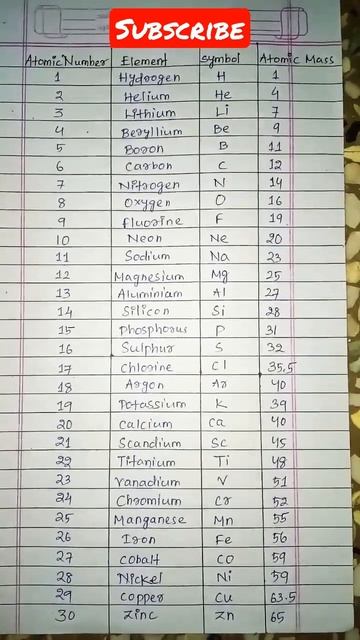 SUBSCRIBE
Atomic Number Element Symbol Atomic Mass
1 Hydrogen H 1
2 Helium He 4
3 Lithium Li 7
4 Beryllium Be 9
5 Boron B 11
6 Carbon C 12
7 Nitrogen N 14
8 Oxygen O 16
9 Fluorine F 19
10 Neon Ne 20
11 Sodium Na 23
12 Magnesium Mg 25
13 Aluminiam Al 27
14 Silicon Si 28
15 Phosphorus P 31
16 Sulphur S 32
17 Chlorine Cl 35.5
18 Argon Ar 40
19 Potassium K 39
20 Calcium Ca 40
21 Scandium Sc 45
22 Titanium Ti 48
23 Vanadium V 51
24 Chromium Cr 52
25 Manganese Mn 55
26 Iron Fe 56
27 Cobalt CO 59
28 Nickel Ni 59
29 Copper Cu 63.5
30 Zinc Zn 65